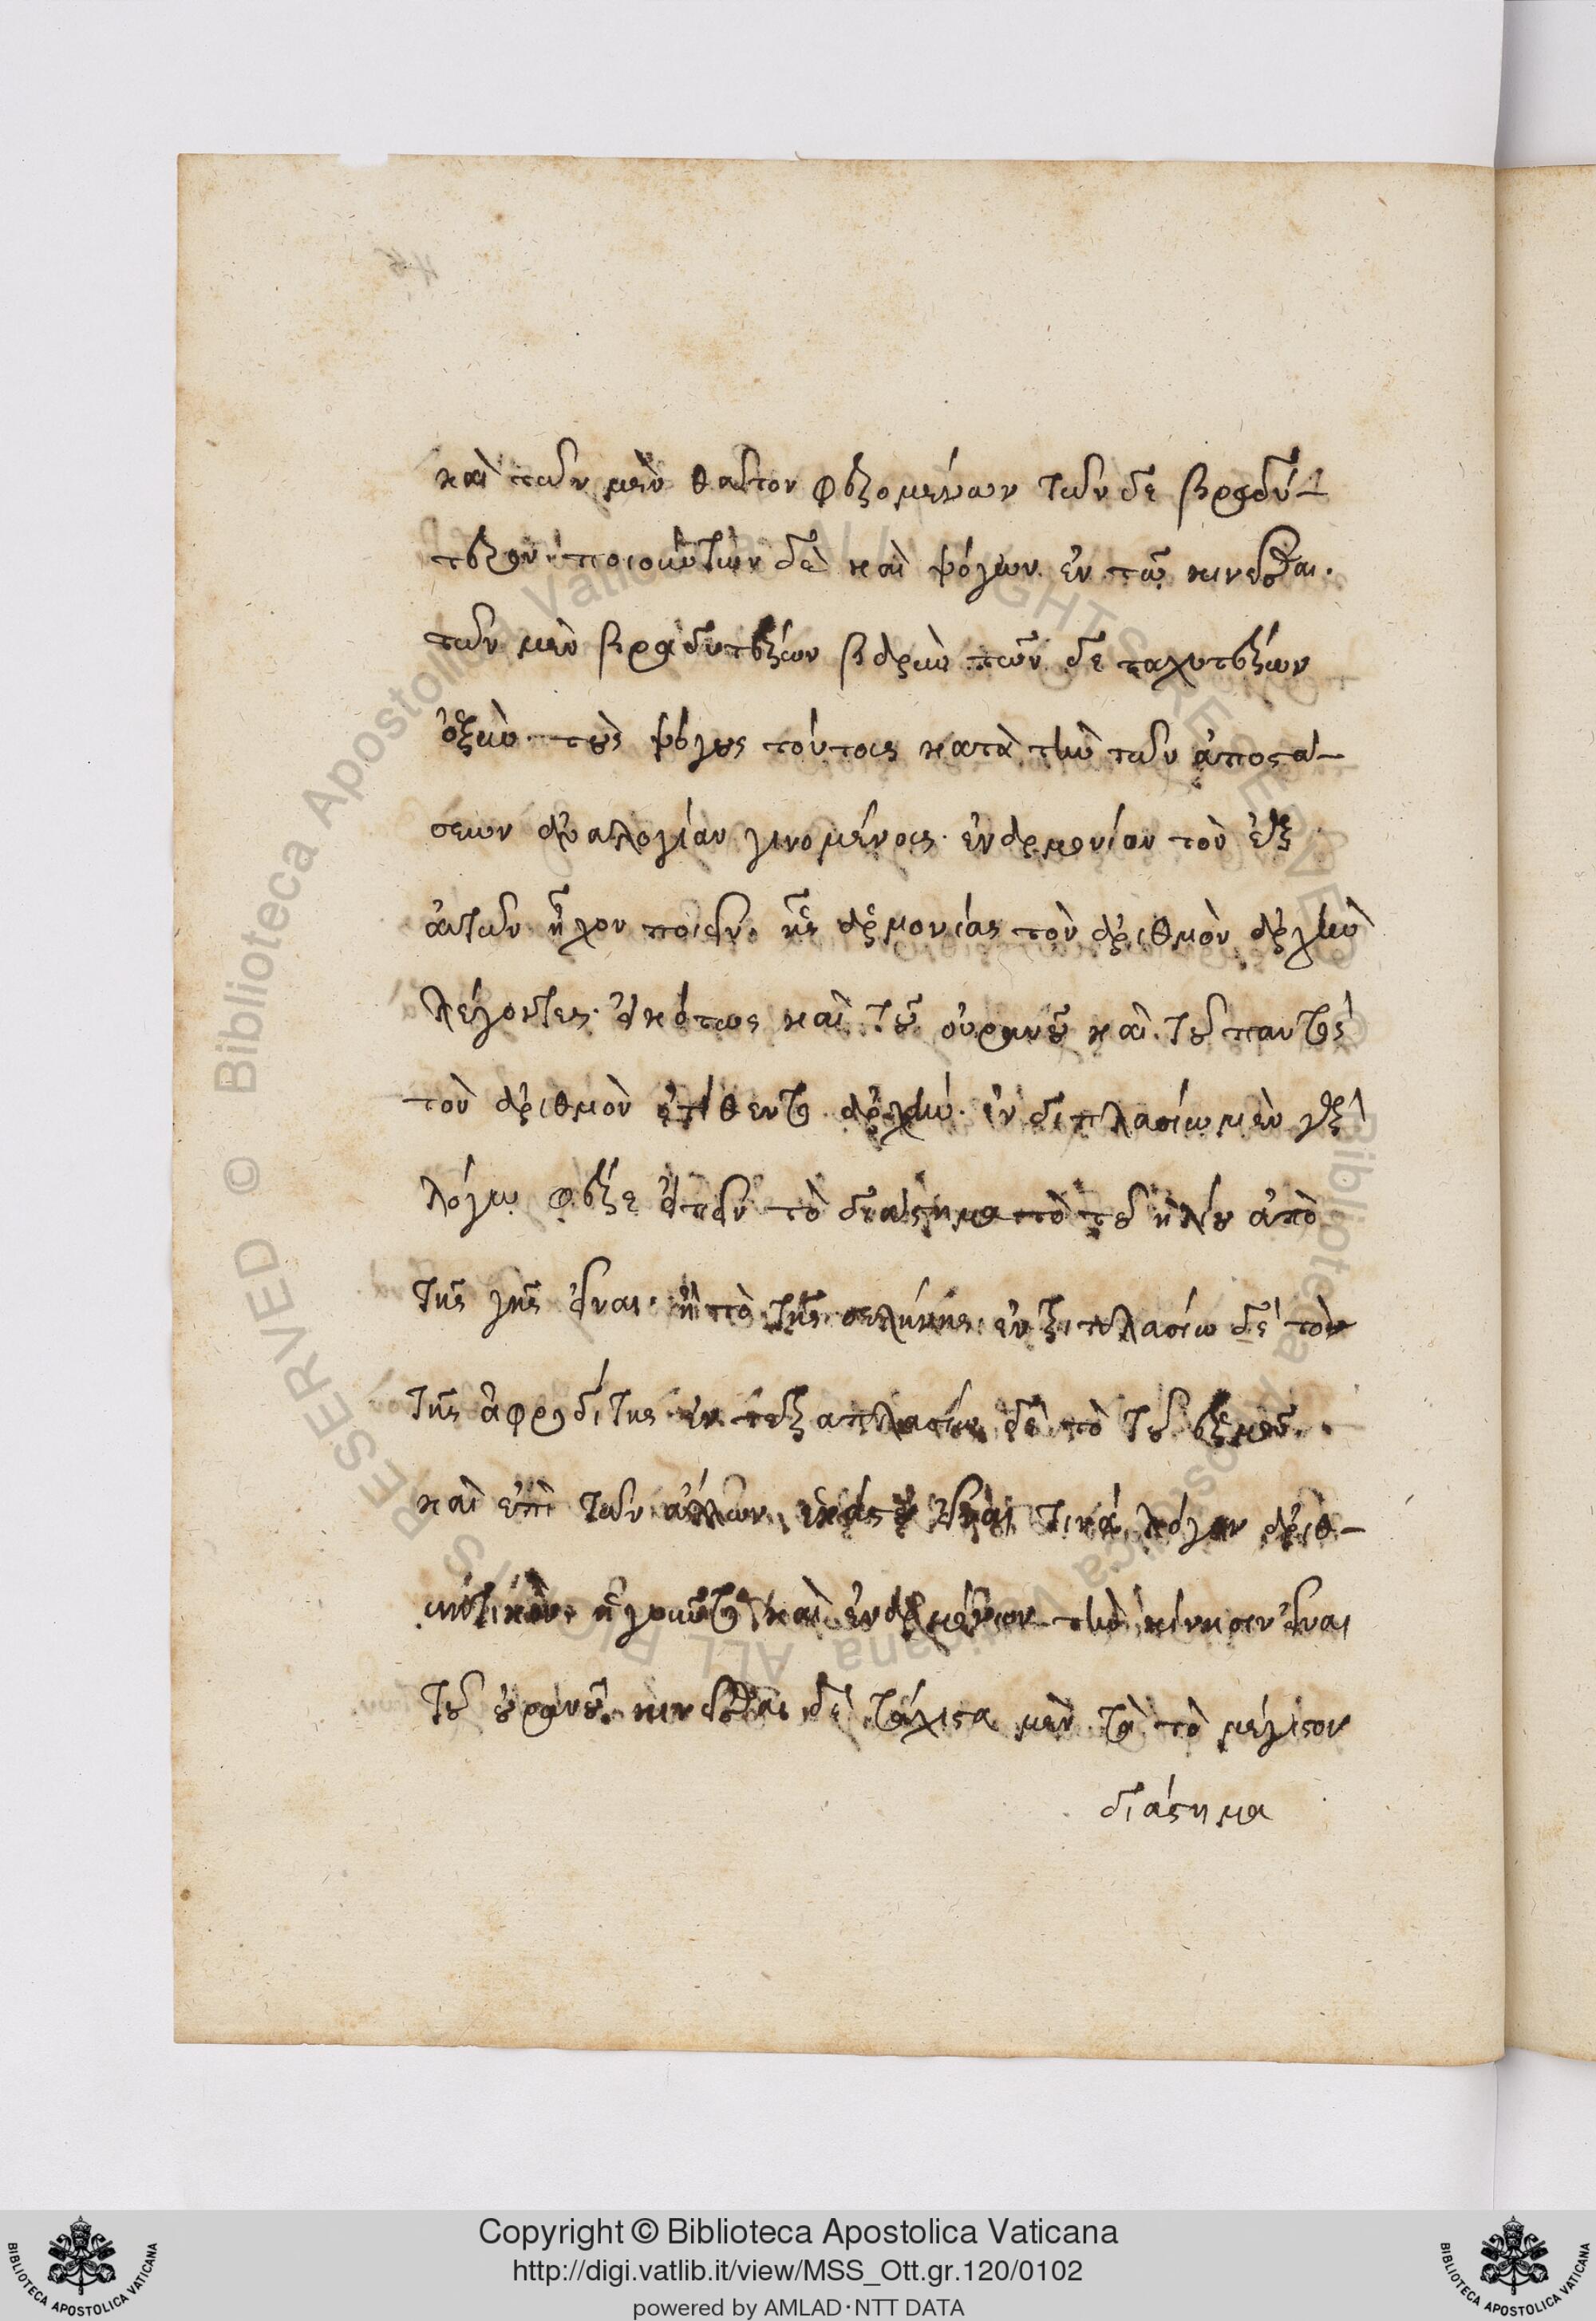 καὶ τῶν μὲν θᾶττον φερομένων τῶν δὲ βραδύ-
τερον· ποιούντων δὲ καὶ ψόφων ἐν τῷ κινεῖσθαι·
τῶν μὲν βραδυτέρων βαρὺν τῶν δὲ ταχυτέρων
ὀξὺν τοὺς ψόφους τούτοις κατὰ τὴν τῶν ἀποστά-
σεων ἀναλογίαν γινομένοις· ἐναρμόνιον τὸν ἐξ
αὐτῶν ἦχον ποιεῖν· ἧς ἁρμονίας τὸν ἀριθμὸν ἀρχὴν
λέγοντες· εἰκότως καὶ τοῦ οὐρανοῦ καὶ τοῦ παντὸς
τὸν ἀριθμὸν ἐτίθεντο ἀρχήν· ἐν διπλασίω μὲν γὰρ
λόγω φέρε εἰπεῖν τὸ διάστημα τὸ τοῦ ἡλίου ἀπὸ
τῆς γῆς εἶναι· ἢ τὸ τῆς σελήνης· ἐν τριπλασίω δὲ τὸν
τῆς ἀφροδίτης ἐν τετραπλασίω δὲ τὸ τοῦ ἑρμοῦ·
καὶ ἐπὶ τῶν ἄλλων ἑκάστου εἶναι τινὰ λόγον ἀριθ-
μητικὸν ἡγοῦντο καὶ ἐναρμόνιον τὴν κίνησιν εἶναι
τοῦ οὐρανοῦ· κινεῖσθαι δὲ τάχιστα μὲν τὰ τὸ μέγιστον
διάστημα
Copyright © Biblioteca Apostolica Vaticana
http://digi.vatlib.it/view/MSS_Ott.gr.120/0102
powered by AMLAD·NTT DATA